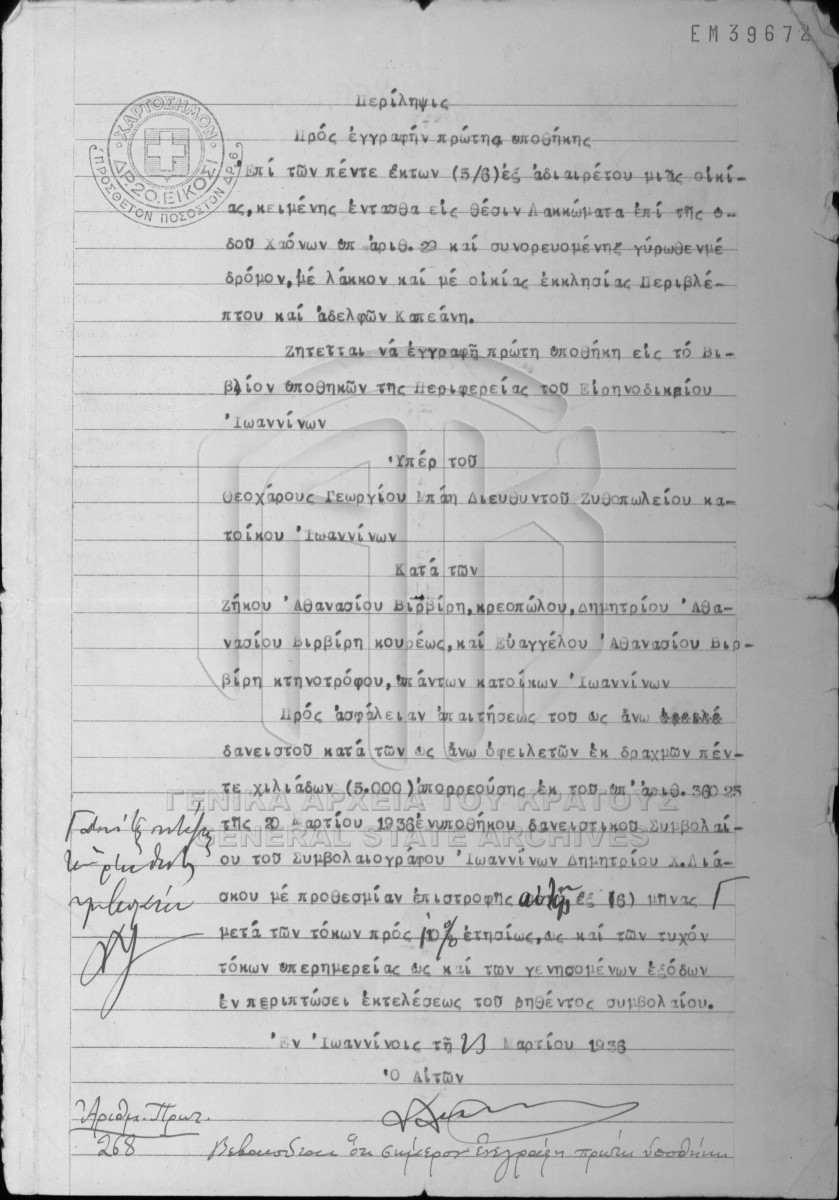 ΕΜ39672
ΧΑΡΤΟΣΗΜΟΝ
ΔΡ.20.ΕΙΚΟΣΙ
ΠΡΟΣΘΕΤΟΝ ΠΟΣΟΣΤΟΝ ΔΡ.6
Περίληψις
Πρός ἐγγραφήν πρώτης υποθήκης
Ἐπί τῶν πέντε ἑκτων (5/6)ἐξ ἀδιαιρέτου μιᾶς οἰκί-
ας,κειμένης ἐνταυθα εἰς θέσιν Λακκώματα ἐπί τῆς ο-
δοῦ Χαόνων υπ ἀριθ.29 καί συνορευομένης γύρωθενμέ
δρόμον,μέ λάκκον καί μέ οἰκίας ἐκκλησίας Περιβλέ-
πτου καί ἀδελφῶν Καπεάνη.
Ζητεῖται νά ἐγγραφῇ πρώτη υποθήκη εἰς τό Βι-
βλίον υποθηκῶν της Περιφερείας τοῦ Εἰρηνοδικείου
Ἰωαννίνων
Ὑπέρ τοῦ
Θεοχάρους Γεωργίου Μπάη Διευθυντοῦ Ζυθοπωλείου κα-
τοίκου Ἰωαννίνων
Κατά των
Ζήκου Ἀθανασίου Βιρβίρη,κρεοπώλου,Δημητρίου Ἀθα-
νασίου Βιρβίρη κουρέως,καί Εὐαγγέλου Ἀθανασίου Βιρ-
βίρη κτηνοτρόφου,ἁπάντων κατοίκων Ἰωαννίνων
Πρός ἀσφάλειαν ἀπαιτήσεως του ως ἄνω
δανειστοῦ κατά τῶν ως ἄνω ὀφειλετῶν ἐκ δραχμῶν πέν-
τε χιλιάδων (5.000)ἀπορρεούσης ἐκ τοῦ υπ' ἀριθ.36025
τῆς 20 Μαρτίου 1936ἐνυποθήκου δανειστικοῦ Συμβολαί-
ου τοῦ Συμβολαιογράφου Ἰωαννίνων Δημητρίου Χ.Λιά-
σκου μέ προθεσμίαν ἐπιστροφῆς αὐτῆς ἐξ (6) μηνας Γ
μετά τῶν τόκων πρός 10% ἐτησίως,ως καί τῶν τυχόν
τόκων υπερημερείας ως καί των γενησομένων ἐξόδων
ἐν περιπτώσει ἐκτελέσεως τοῦ ρηθέντος συμβολαίου.
Ἐν Ἰωαννίνοις τῇ 23 Μαρτίου 1936
Ὁ Αἰτῶν
Ἀριθμ. Πρωτ.
268
Βεβαιοῦται ὅτι σήμερον ἐνεγράφη πρώτη ὑποθήκη
ΓΕΝΙΚΑ ΑΡΧΕΙΑ ΤΟΥ ΚΡΑΤΟΥΣ
GENERAL STATE ARCHIVES